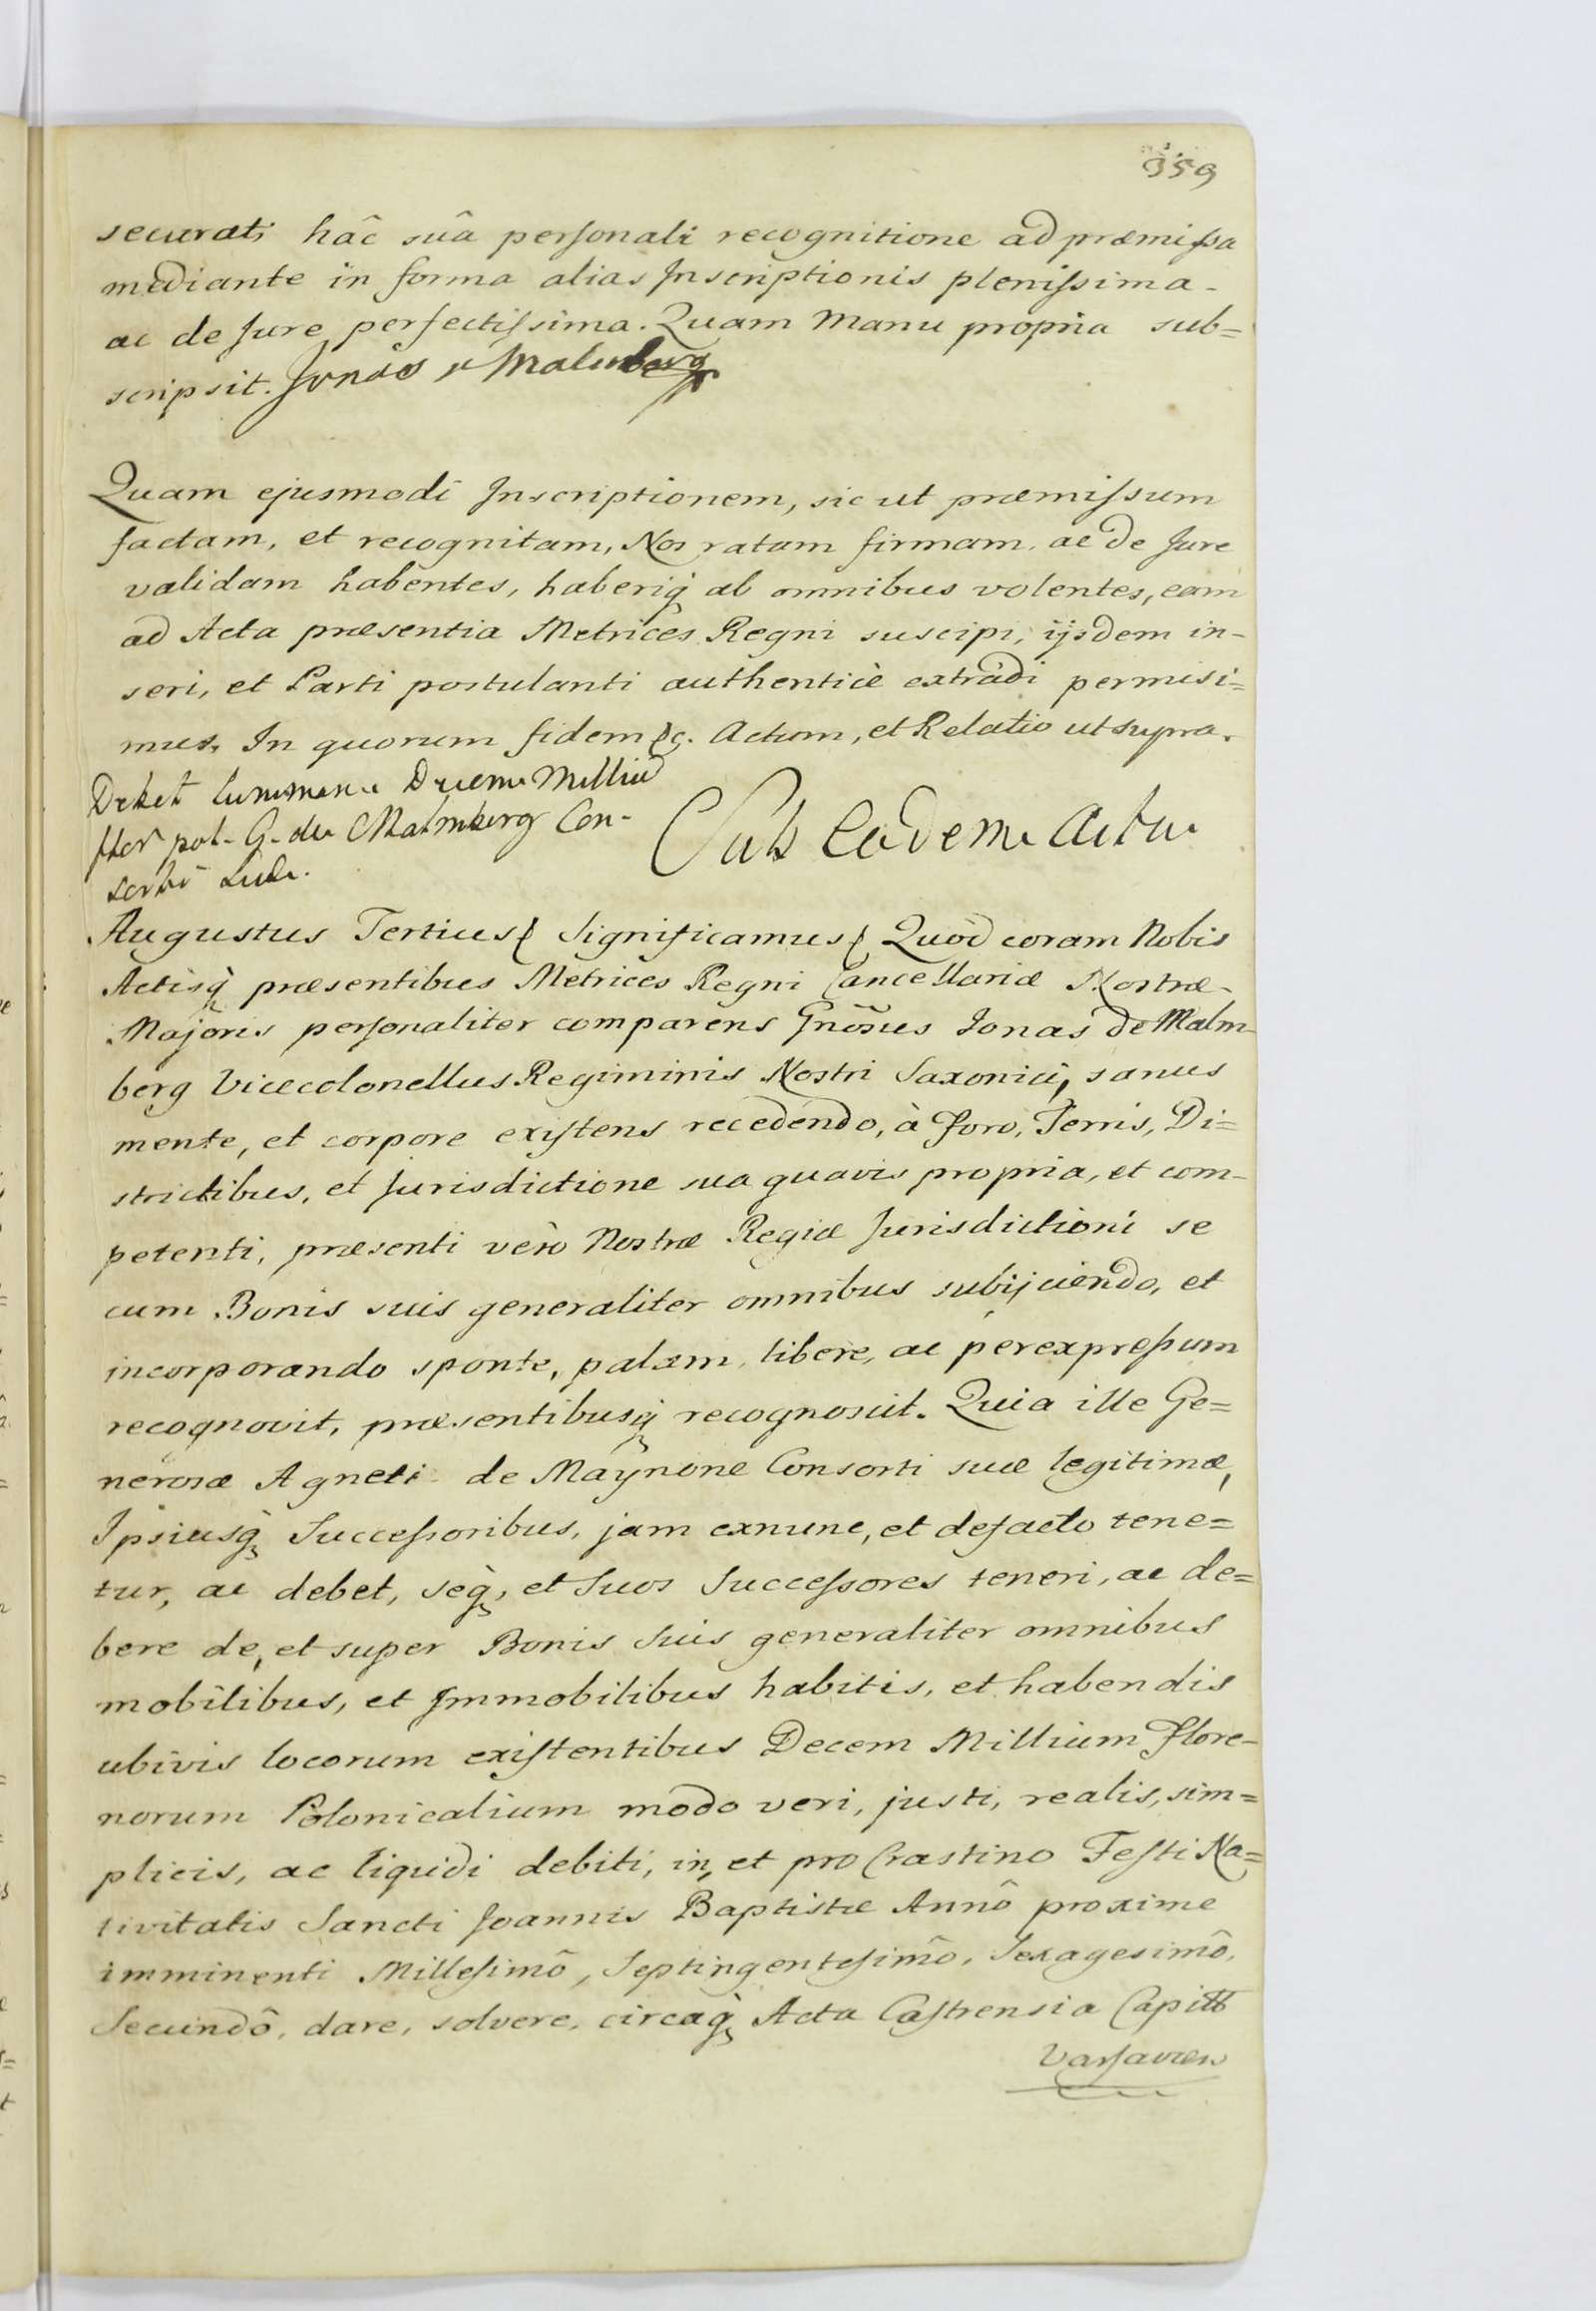 359
securati hâc suâ personali recognitione ad præmissa
mediante in forma alias Inscriptionis plenissima
ac de Jure perfectissima. Quam Manu propria sub=
scripsit. Jonas v Malmberg
Quam ejusmodi Inscriptionem, sicut præmissum
factam, et recognitam, Nos ratam firmam, ac de Jure
validam habentes, haberiq̀ ab omnibus volentes, eam
ad Acta præsentia Metrices Regni suscipi, ijsdem in-
seri, et Parti postulanti authenticè extradi permisi=
mus, In quorum fidem &c. Actum, et Relatio ut supra.
Debet summam Decem Milliu
flor pol. G. de Malmberg Con-
sorti suæ.
Sub Eadem Actu
Augustus Tertius &c Significamus &c Quòd coram Nobis
Actisq̀ præsentibus Metrices Regni Cancellariæ Nostræ
Majoris personaliter comparens Gnõsus Jonas de Malm-
berg Vicecolonellus Regiminis Nostri Saxonici, sanus
mente, et corpore existens recedendo, à Foro, Terris, Di=
strictibus, et Jurisdictione sua quavis propria, et com-
petenti, præsenti verò Nostræ Regiæ Jurisdictioni se
cum Bonis suis generaliter omnibus subijciendo, et
incorporando sponte, palam, liberè, ac per expressum
recognovit, præsentibusq̀ recognoscit. Quia ille Ge=
nerosæ Agneti de Maÿnone Consorti suæ legitimæ,
Ipsiusq̀ Successoribus, jam exnunc, et defacto tene=
tur, ac debet, seq̀, et Suos Successores teneri, ac de=
bere de, et super Bonis Suis generaliter omnibus
mobilibus, et Immobilibus habitis, et habendis
ubivis locorum existentibus Decem Millium Flore-
norum Polonicalium modo veri, justi, realis, sim=
plicis, ac liquidi debiti, in, et pro Crastino Festi Na=
tivitatis Sancti Joannis Baptistæ Annô proxime
imminenti Millesimô, Septingentesimô, Sexagesimô,
Secundô, dare, solvere, circaq̀ Acta Castrensia Capitt
Varsavien